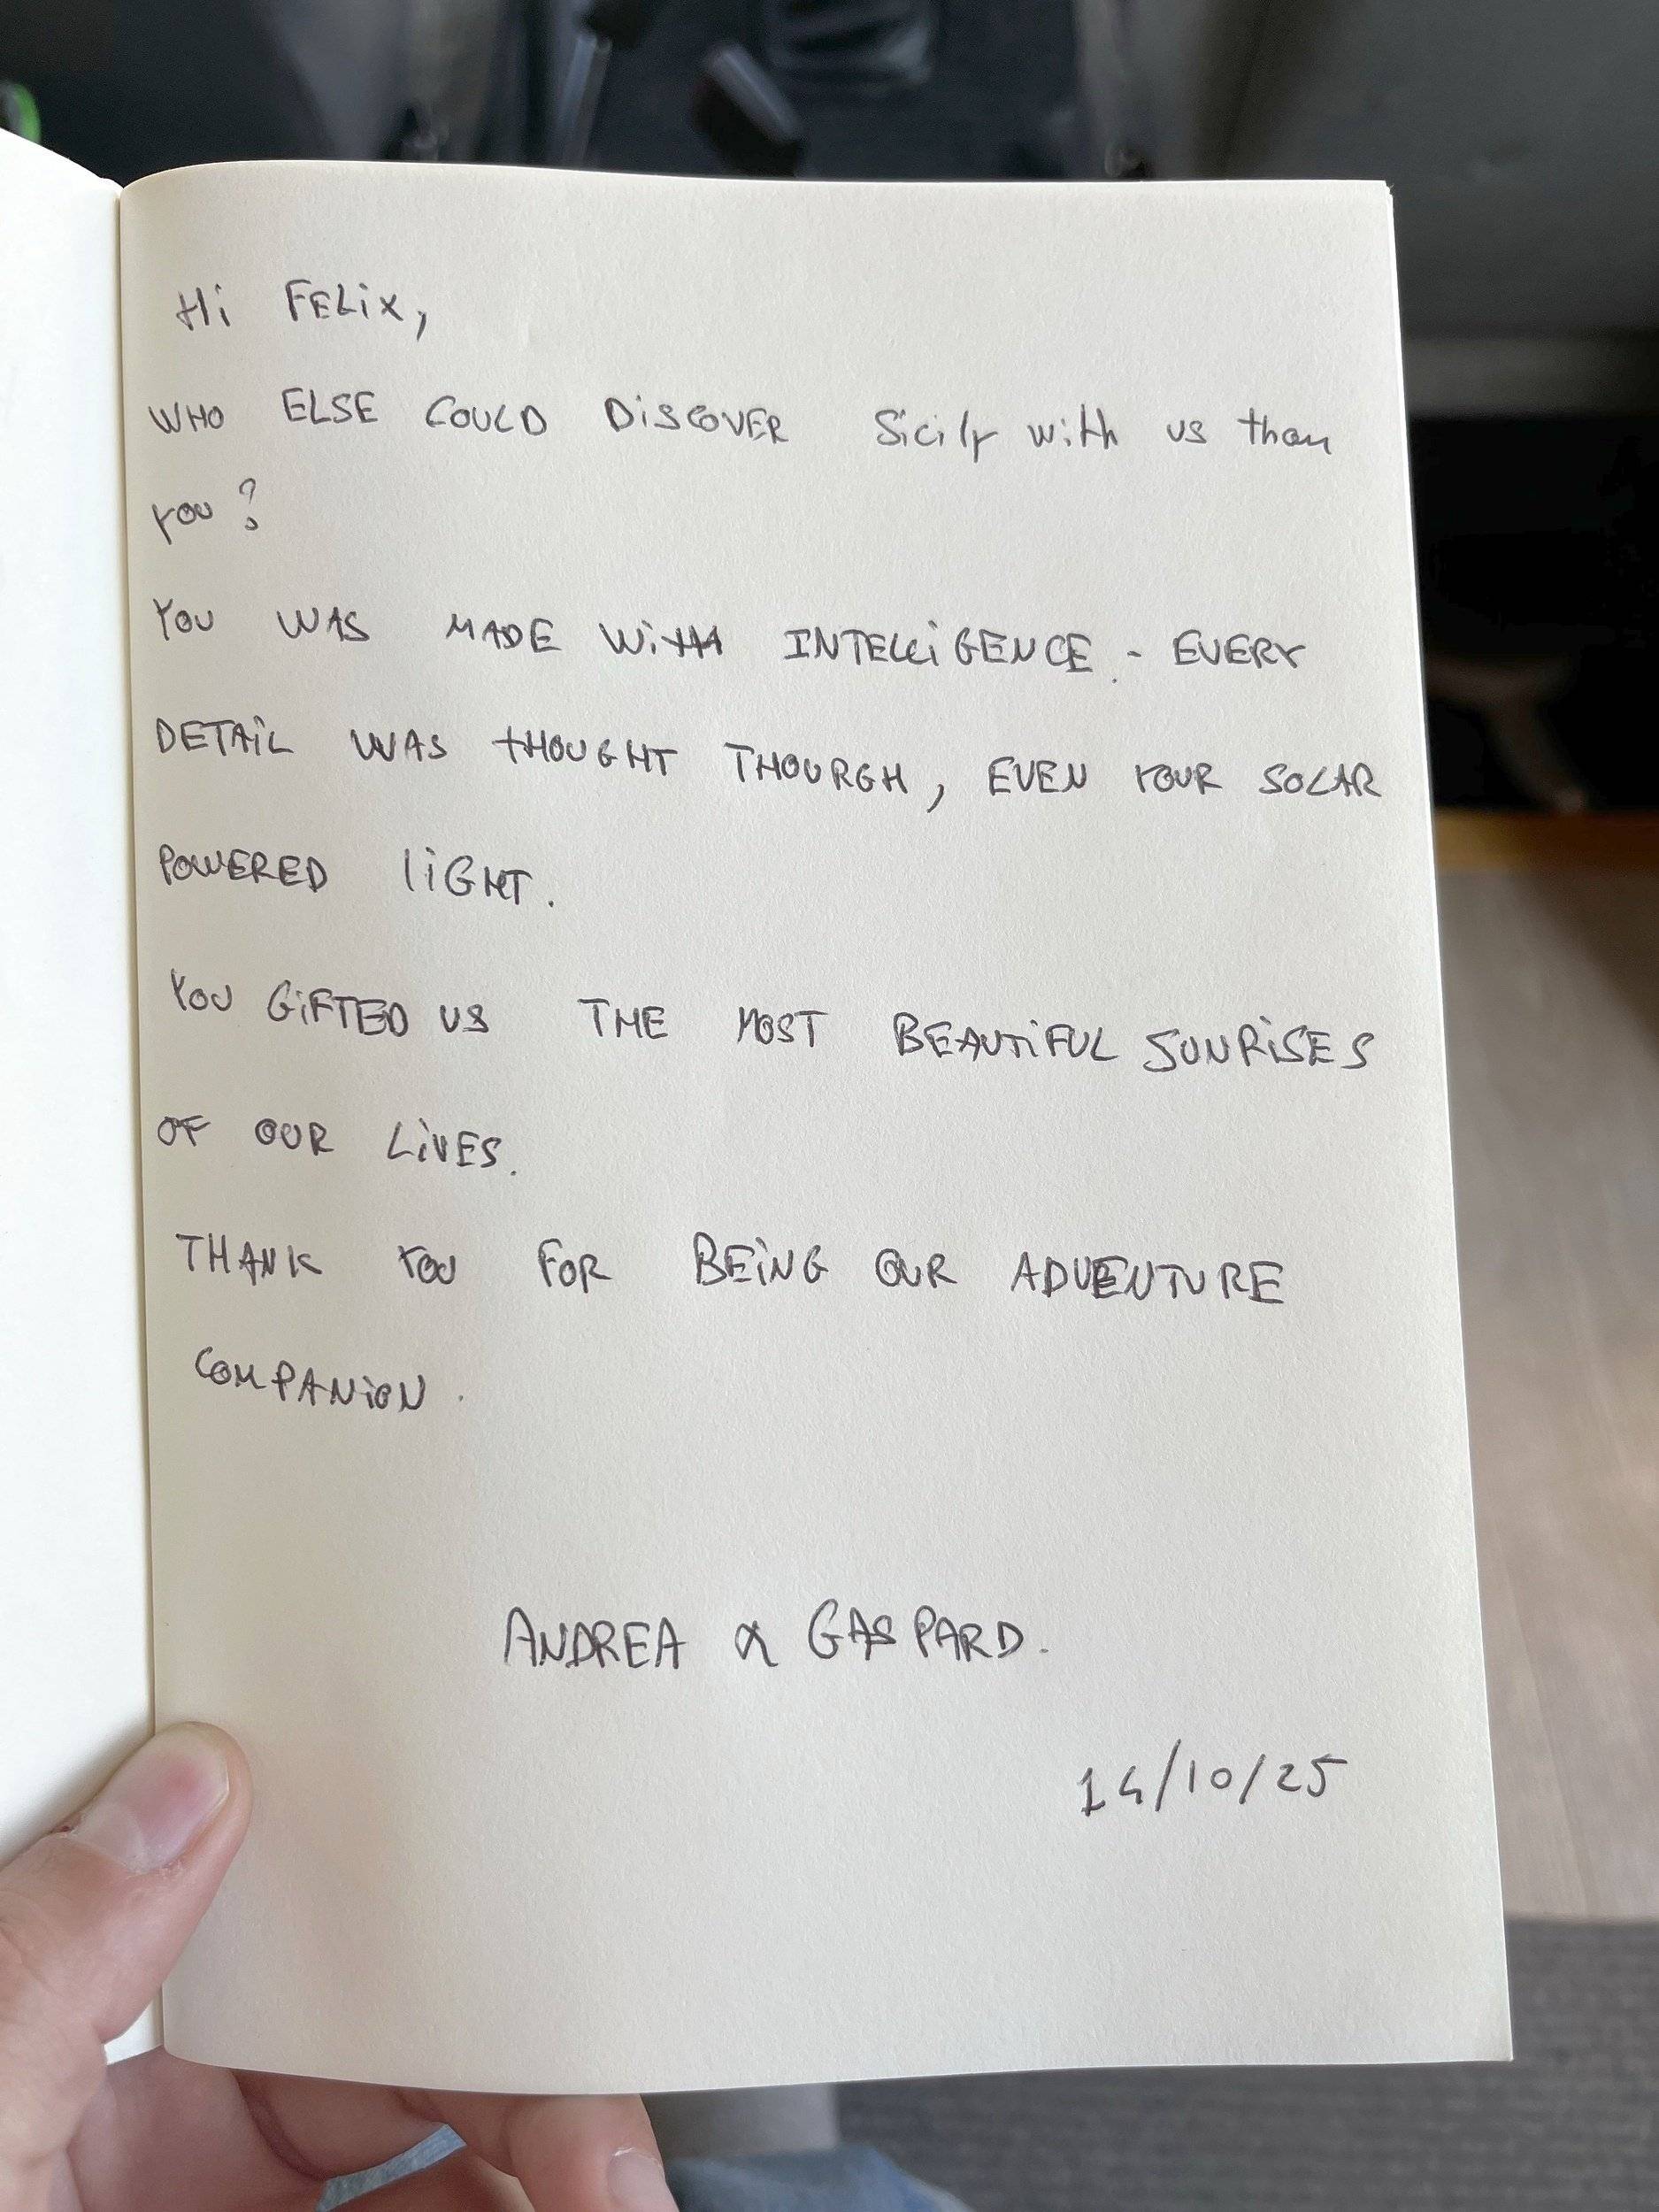 Hi FELiX,
WHO ELSE COULD DiSCOVER Sicily with us than
you?
YOU WAS MADE WiTH INTELLiGENCE. - EVERY
DETAiL WAS tHOUGHT THOURGH, EVEN YOUR SOLAR
POWERED liGHT.
YOU GiFTED US THE MOST BEAUTiFUL SUNRiSES
OF OUR LiVES.
THANK YOU FOR BEiNG OUR ADVENTURE
COMPANiON.
ANDREA & GASPARD.
14/10/25